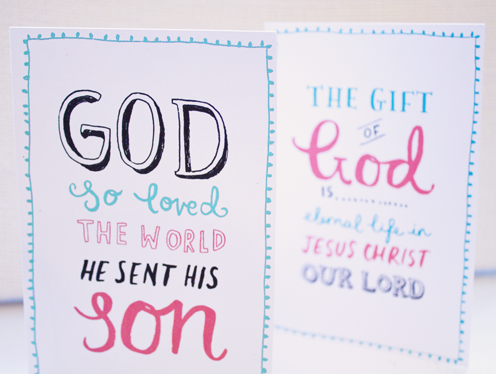 GOD
so loved
THE WORLD
HE SENT HIS
son
THE GIFT
OF
God
IS...........
eternal life in
JESUS CHRIST
OUR LORD